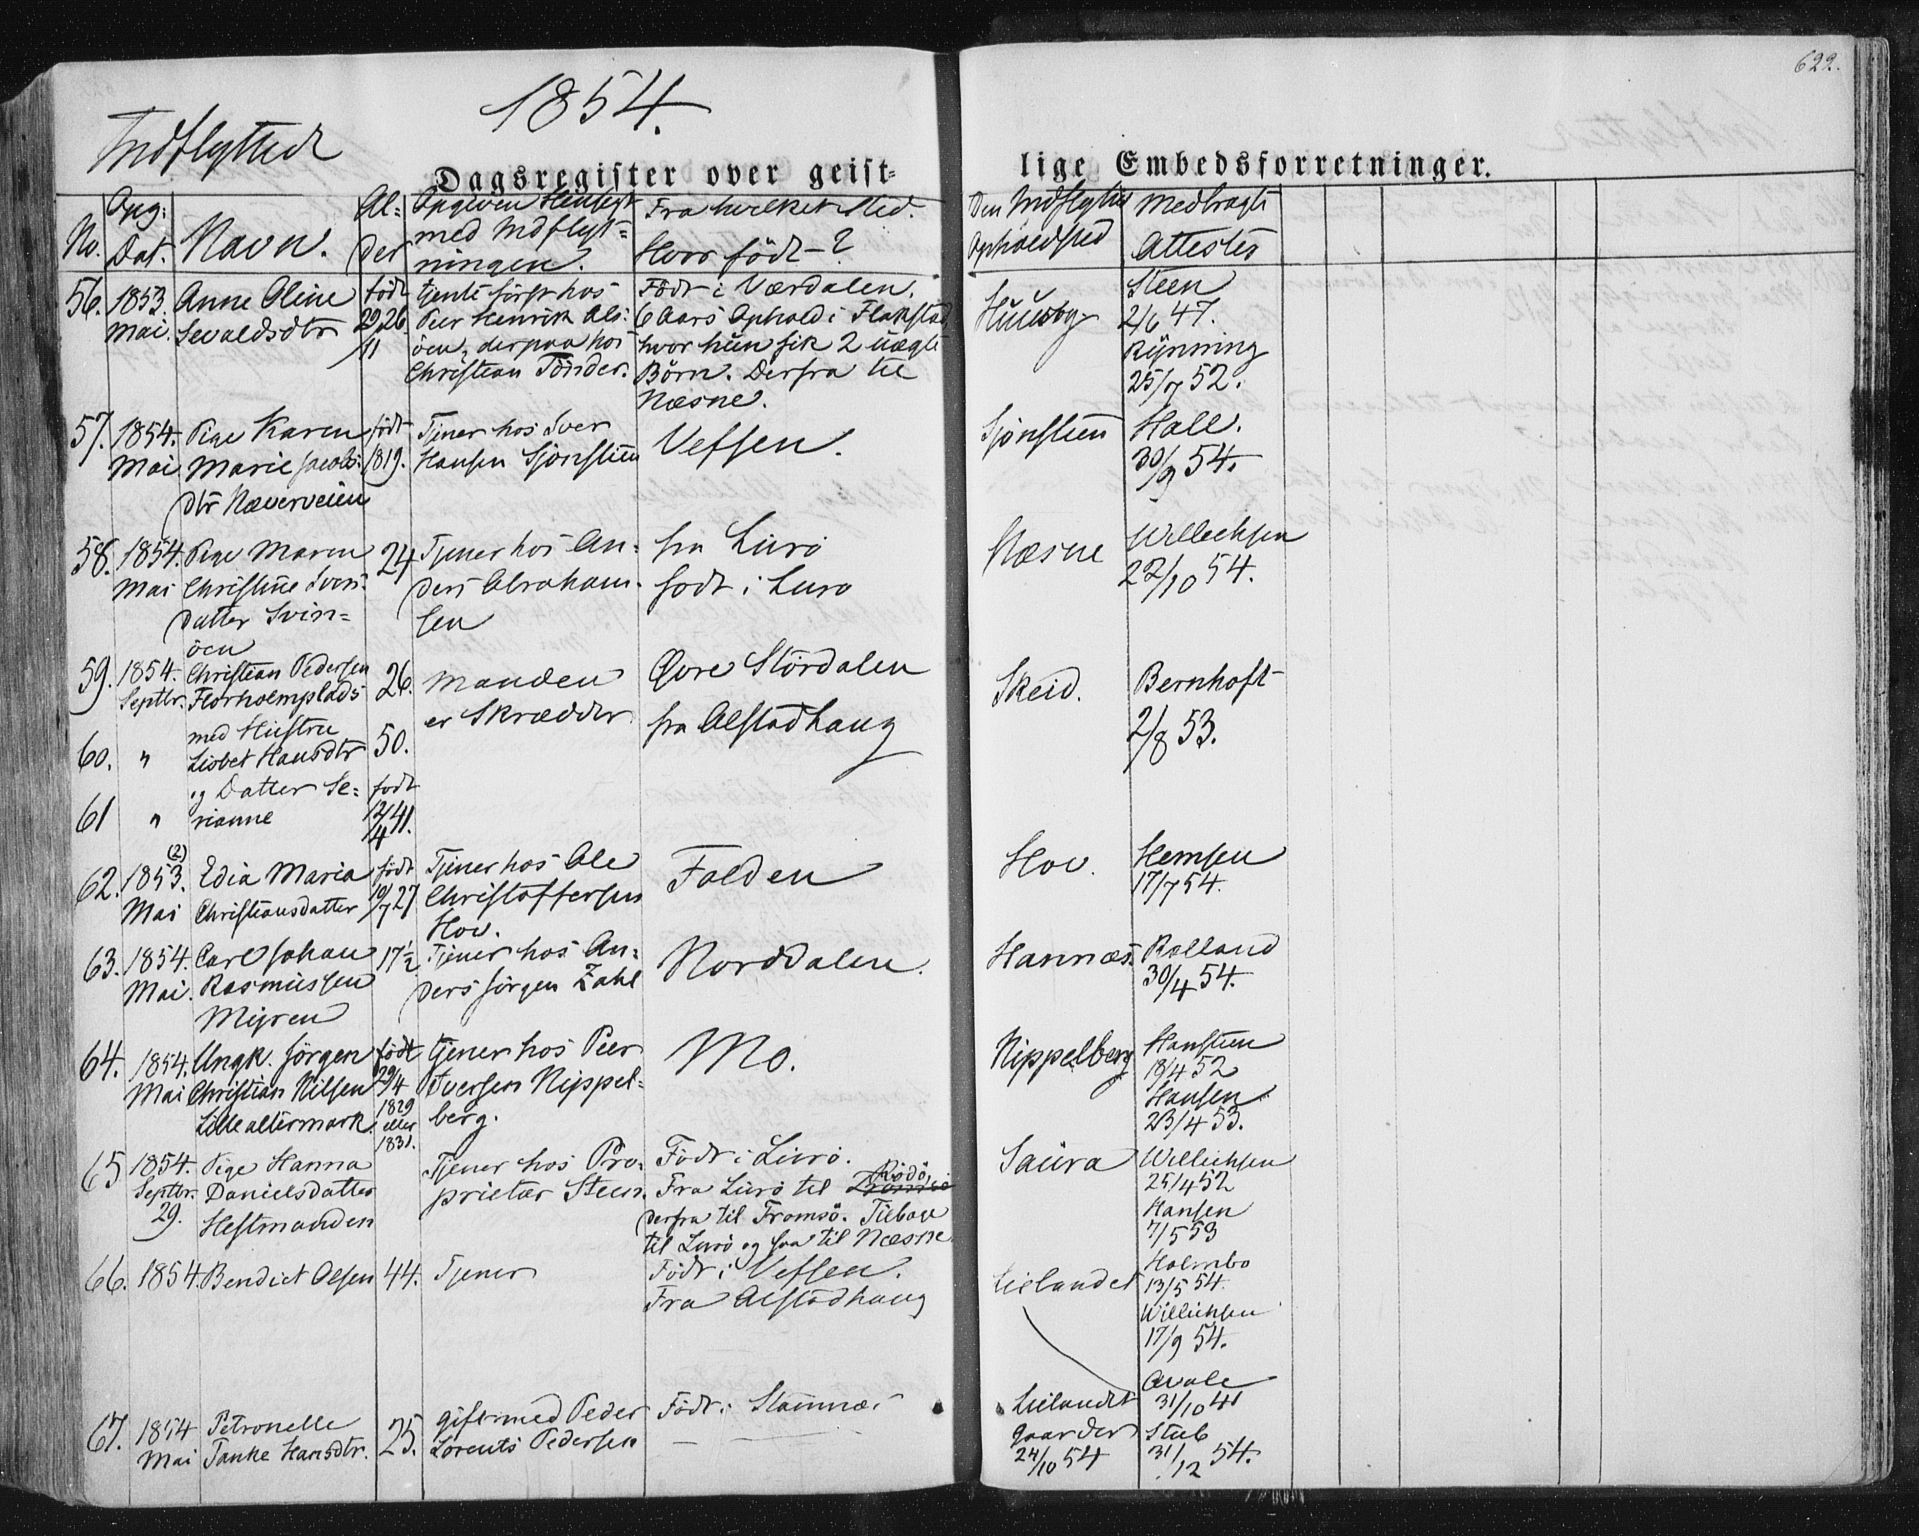 622.
1854.
Indflyttede
Dagsregister over geist=
lige Embedsforretninger.
No.
Opg:
Dat.
Navn.
Al=
der
Opgiven Hensigt
med Indflyt=
ningen.
Fra hvilket Sted.
Hvor födt-?
Den Indflyttedes
Opholdsted
Medbragte
Attester
56.
1853.
Mai.
Anne Oline
Sevaldsdtr
födt
29/11 26
tjente först hos
Peer Henrik Als:
öen, derpaa hos
Christian Tönder.
Födt i Værdalen.
6 Aars Ophold i Flakstad,
hvor hun fik 2 uægte
Börn. Derfra til
Næsne.
Huusby
Steen
2/6 47.
Rynning
25/7 52.
57.
1854.
Mai
Pige Karen
Marie Jacobs:
dtr Næverveien
födt
1819.
Tjener hos Iver
Hansen Sjönstuen
Vefsen.
Sjönstuen
Hall.
30/9 54.
58.
1854.
Mai
Pige Maren
Christine Svens
datter Svin=
öen
24
Tjener hos An=
ders Abraham-
sen
fra Lurö
födt i Lurö
Næsne
Willichsen
22/10 54.
59.
1854.
Septbr.
Christian Pedersen
Florholmplads
26.
Manden
er Skrædder
Övre Stördalen
fra Alstadhaug
Skeid.
Bernhoft
2/8 53.
60.
"
med Hustru
Lisbet Hansdtr
50.
61
"
og Datter Se=
rianne
födt
12/4 41.
62.
1853. (2)
Mai
Edia Maria
Christiansdatter
födt
10/7 27
Tjener hos Ole
Christoffersen
Hov.
Folden
Hov.
Hemsen
17/7 54.
63.
1854.
Mai.
Carl Johan
Rasmussen
Myren
17½
Tjener hos An=
ders Jörgen Zahl
Norddalen.
Hannæs
Rolland
30/4 54.
64.
1854.
Mai
Ungk. Jörgen
Christian Nilsen
Lille altermark
födt
29/4
1829
eller
1831.
tjener hos Peer
Iversen Nippel=
berg.
Mo.
Nippelberg
Hansteen
18/4 52
Hansen
23/4 53.
65
1854.
Septbr.
29.
Pige Hanna
Danielsdatter
Hestmanden
Tjener hos Pro=
prietær Steen.
Födt i Lurö.
Fra Lurö til Rödö,
derfra til Tromsö. Tilbage
til Lurö og saa til Næsne
Saura
Willichsen
25/4 52
Hansen
7/5 53
66.
1854.
Bendict Olsen
44.
Tjener
Födt i Vefsen.
Fra Alstadhaug
Leilandet
Holmbo
13/5 54.
Willichsen
17/9 54.
67.
1854
Mai
Petronelle
Tanke Hansdtr.
25.
gift med Peder
Lorents Pedersen
Födt i Stamnæs
Leilandet
Gaarder
24/10 54
31/10 41
Stub
31/12 54.